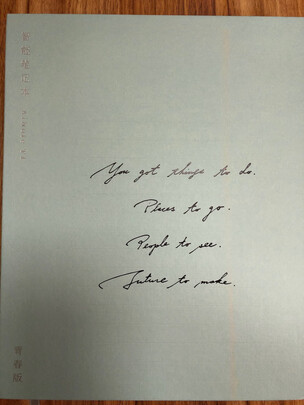 You got things to do.
Places to go.
People to see.
Future to make.
青春版